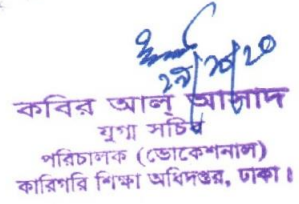 ২৯/১০/২০
কবির আল্ আসাদ
যুগ্ম সচিব
পরিচালক (ভোকেশনাল)
কারিগরি শিক্ষা অধিদপ্তর, ঢাকা।